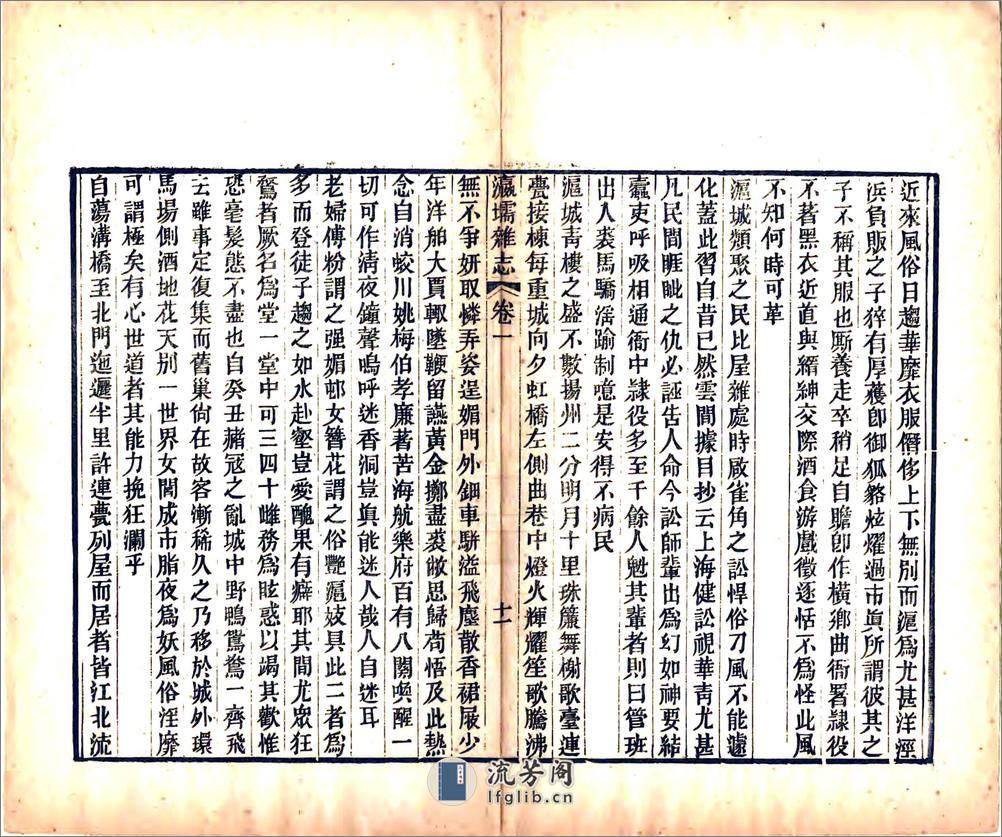 近來風俗日趨華靡衣服僭侈上下無別而滬爲尤甚洋涇
浜負販之子猝有厚蓄卽御狐貉炫燿過市眞所謂彼其之
子不稱其服也廝養走卒稍足自贍卽作橫鄉曲衙署隸役
不著黑衣近直與縉紳交際酒食游戲徵逐恬不爲怪此風
不知何時可革
滬城類聚之民比屋雜處時啟雀角之訟悍俗刀風不能遽
化蓋此習自昔已然雲間據目抄云上海健訟視華靑尤甚
凡民間睚眦之仇必誣告人命今訟師輩出爲幻如神要結
蠹吏呼吸相通衙中隸役多至千餘人魁其輩者則曰管班
出入裘馬驕淫踰制噫是安得不病民
滬城靑樓之盛不數揚州二分明月十里珠簾舞榭歌臺連
甍接棟每重城向夕虹橋左側曲巷中燈火輝耀笙歌騰沸
瀛壖雜志 卷一 十一
無不爭妍取憐弄姿逞媚門外鈿車駢溢飛塵散香裙屐少
年洋舶大賈輒墜鞭留讌黃金擲盡裘敝思歸苟悟及此熱
念自消蛟川姚梅伯孝廉著苦海航樂府百有八闋喚醒一
切可作淸夜鐘聲嗚呼迷香洞豈眞能迷人哉人自迷耳
老婦傅粉謂之强媚邨女簪花謂之俗艷滬妓具此二者爲
多而登徒子趨之如水赴壑豈愛醜果有癖耶其間尤眾狂
騖者厥名爲堂一堂中可三四十雌務爲眩惑以竭其歡惟
恐毫髮態不盡也自癸丑赭冦之亂城中野鴨鴛鴦一齊飛
去雖事定復集而舊巢尙在故客漸稀久之乃移於城外環
馬場側酒地花天別一世界女閭成市脂夜爲妖風俗淫靡
可謂極矣有心世道者其能力挽狂瀾乎
自蕩溝橋至北門迤邐半里許連甍列屋而居者皆江北流
流芳阁
lfglib.cn